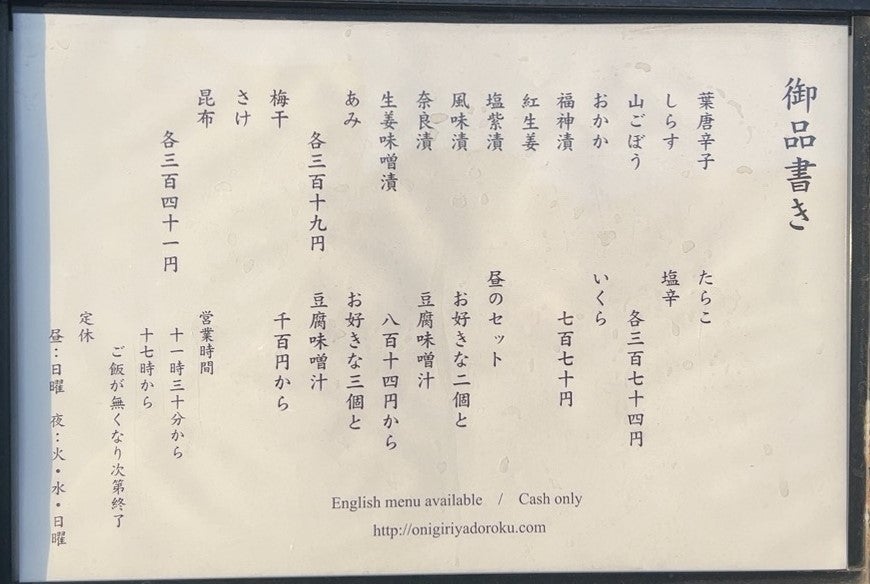 御品書き
葉唐辛子
しらす
山ごぼう
おかか
福神漬
紅生姜
塩紫漬
風味漬
奈良漬
生姜味噌漬
あみ
各三百十九円
梅干
さけ
昆布
各三百四十一円
たらこ
塩辛
各三百七十四円
いくら
七百七十円
昼のセット
お好きな二個と
豆腐味噌汁
八百十四円から
お好きな三個と
豆腐味噌汁
千百円から
営業時間
十一時三十分から
十七時から
ご飯が無くなり次第終了
定休
昼:日曜 夜:火・水・日曜
English menu available / Cash only
http://onigiriyadoroku.com